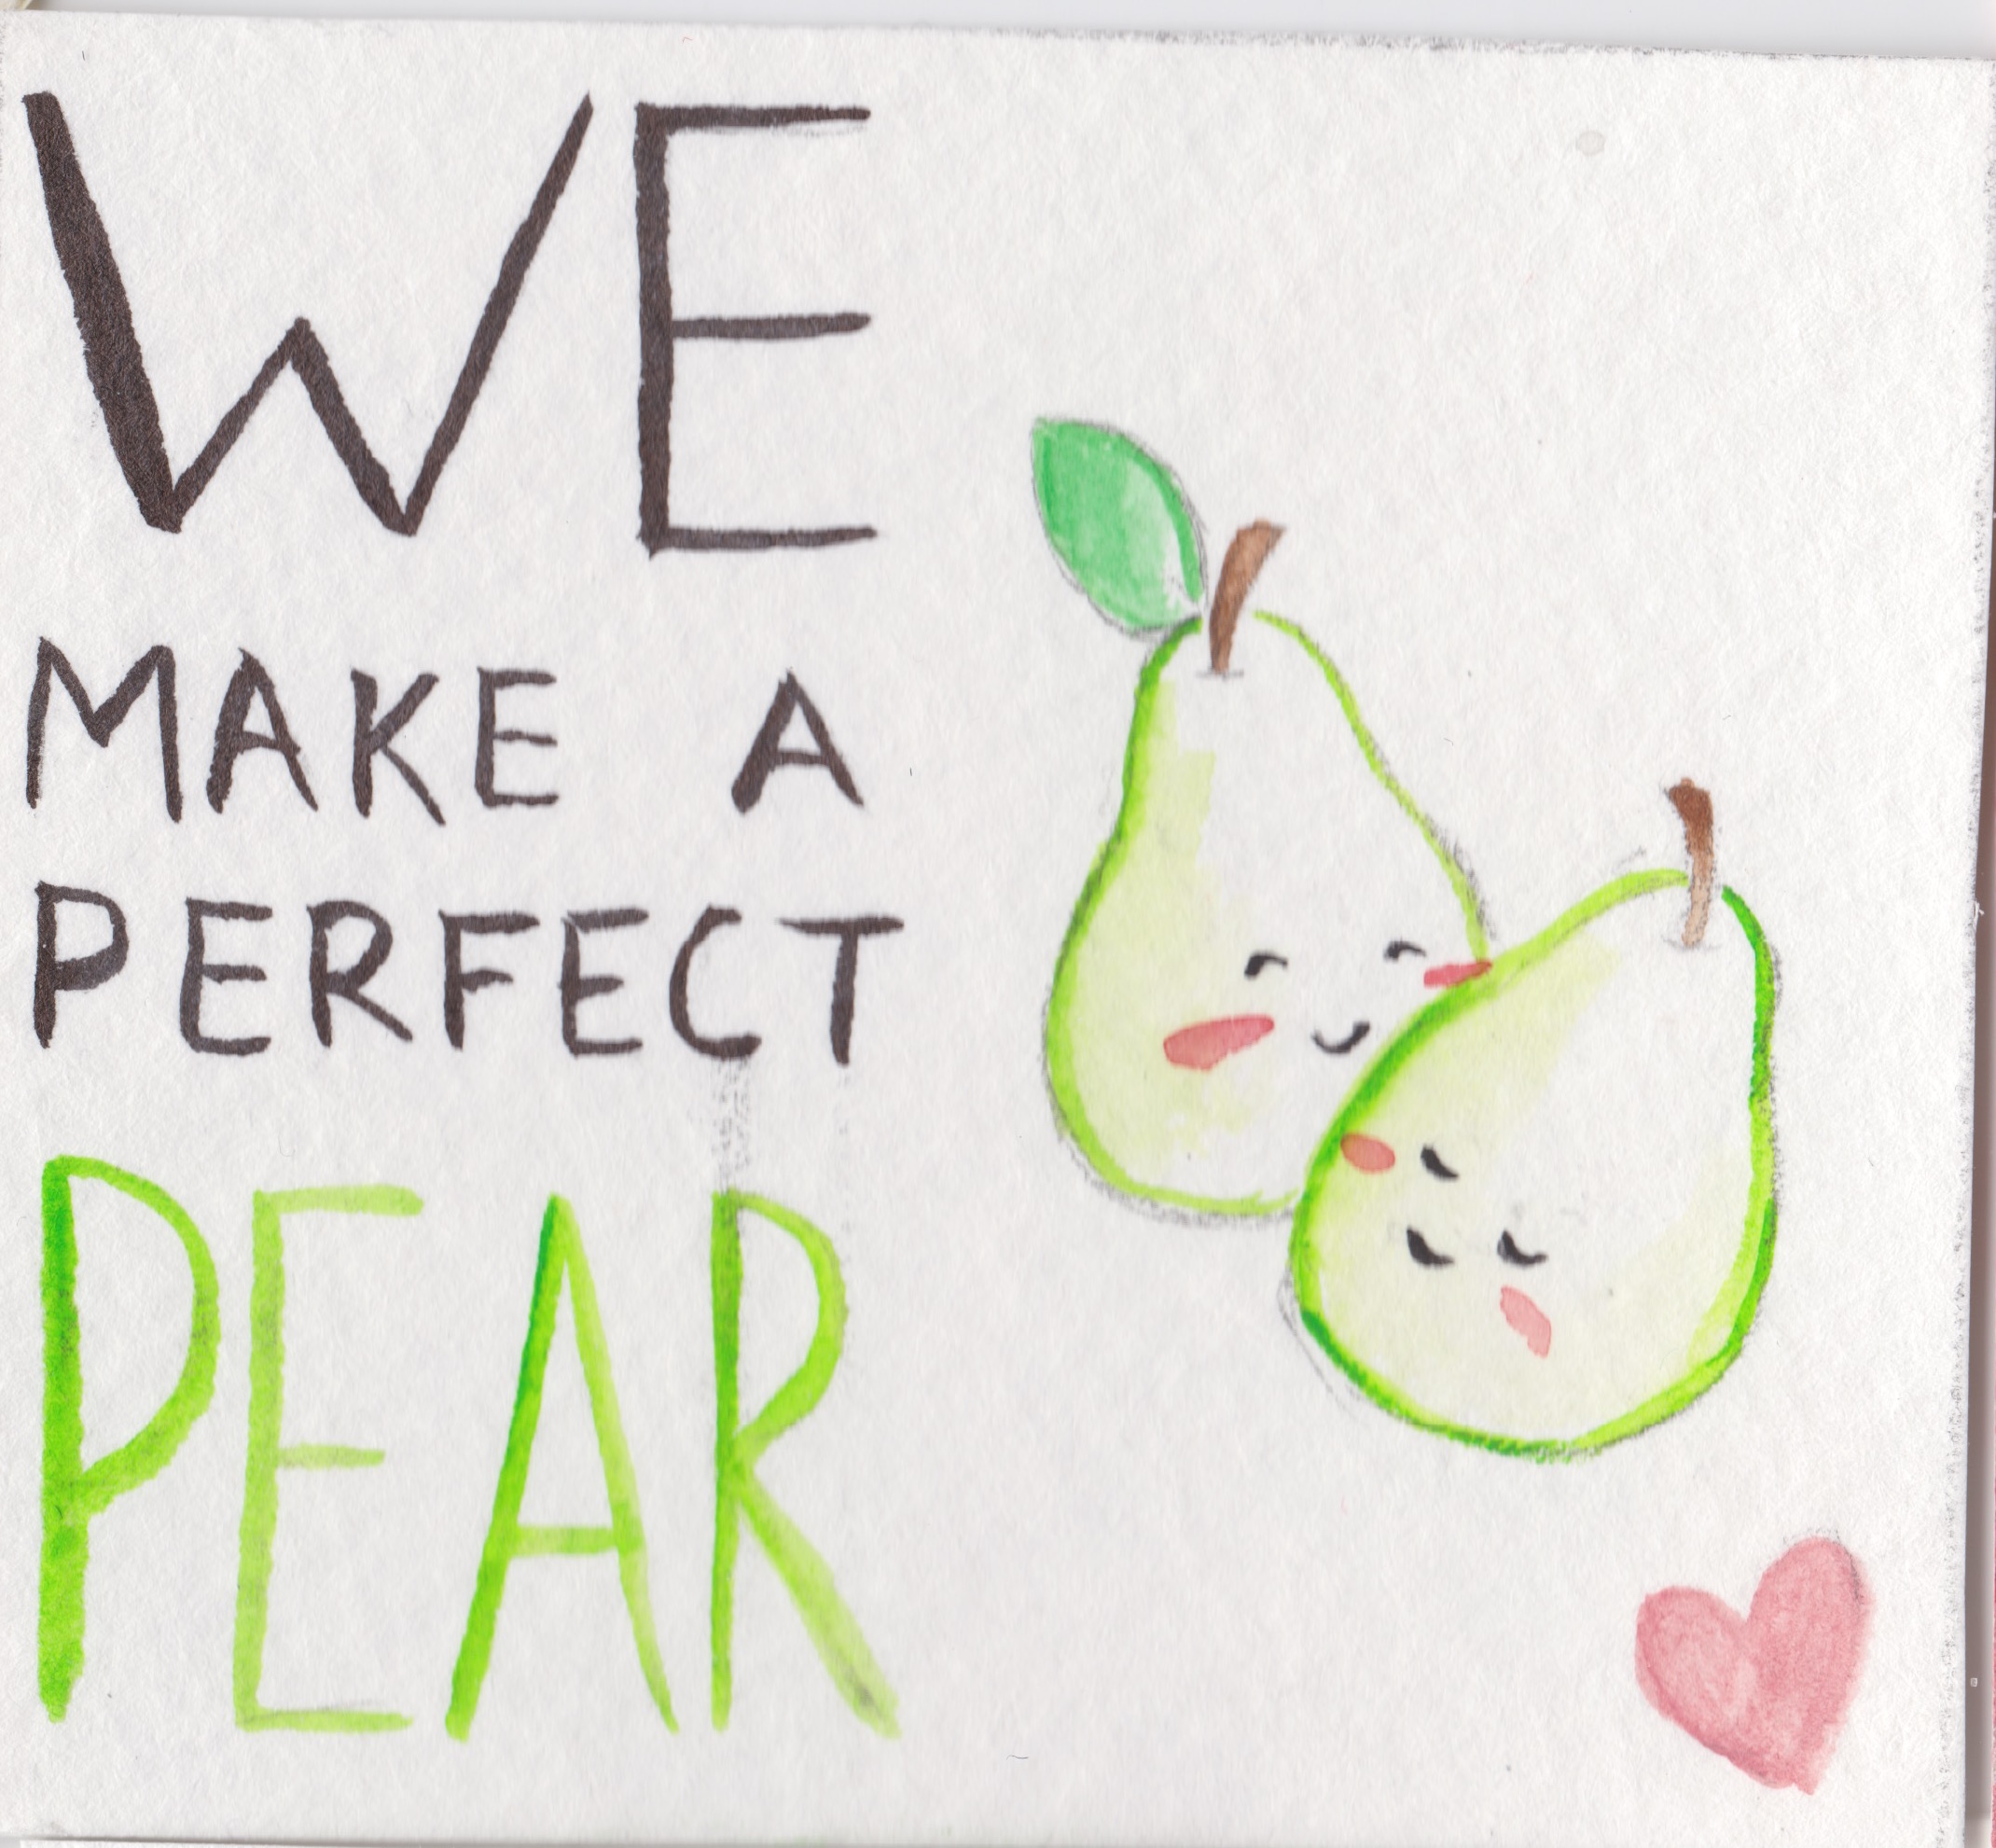 WE
MAKE A
PERFECT
PEAR